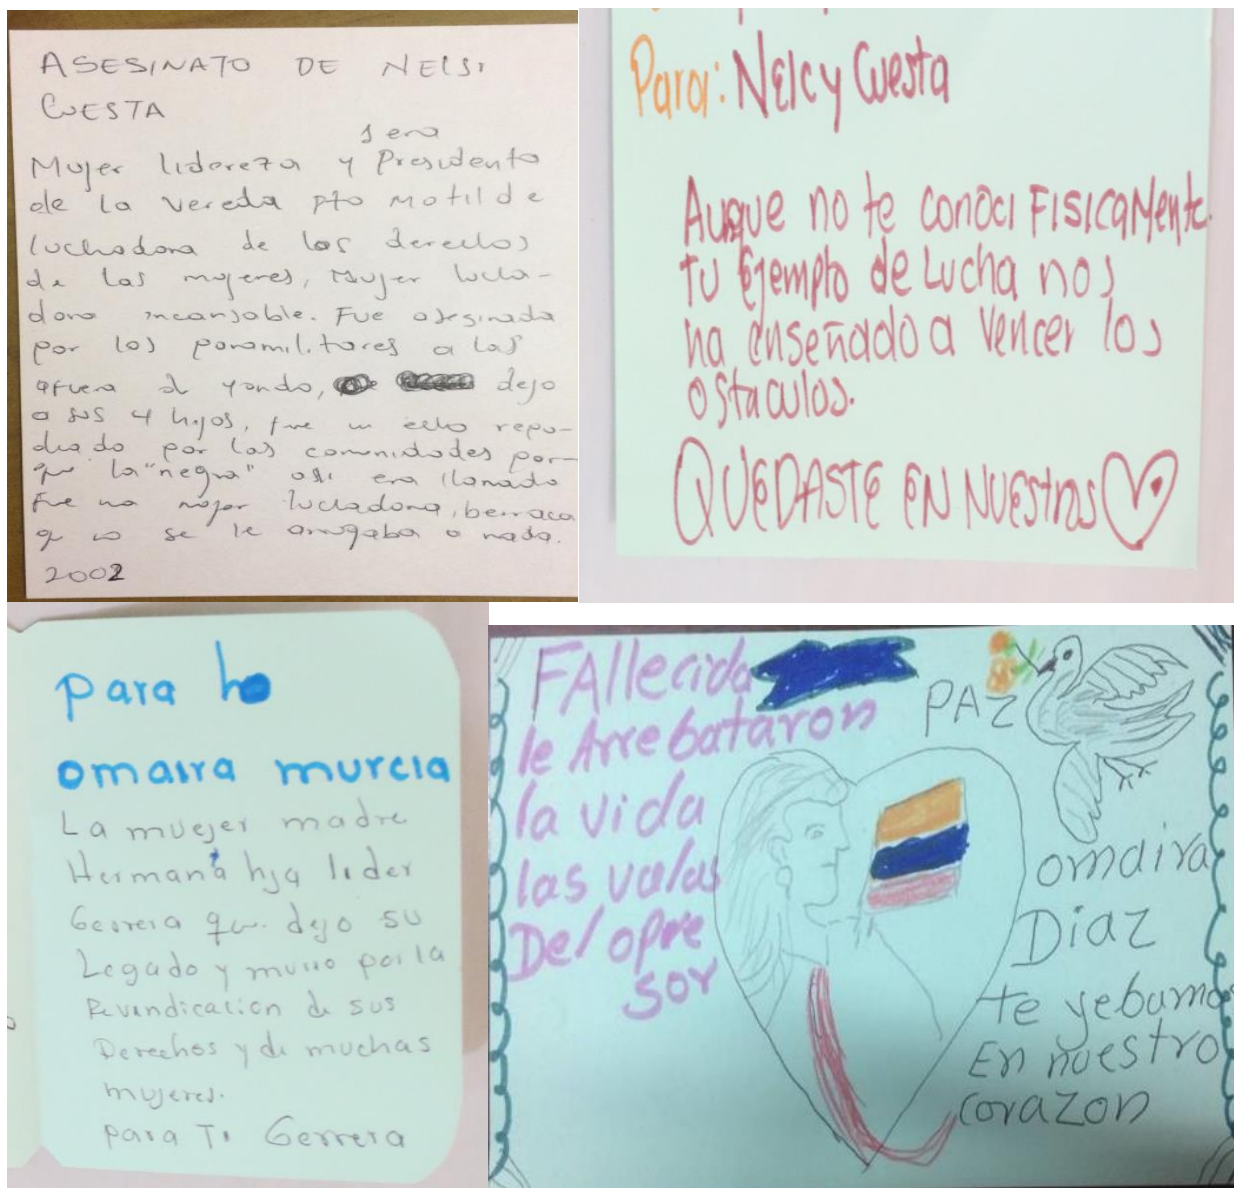 ASESINATO DE NELSI
CUESTA
1era
Mujer lidereza y Presidenta
de la vereda pto Matilde
luchadora de los derechos
de las mujeres, Mujer lucha-
dora incansable. Fue asesinada
por los paramilitares a las
afuera d yondo, dejo
a sus 4 hijos, fue un echo repu-
diado por las comunidades por-
que la "negra" asi era llamada
Fue una mujer luchadora, berraca
q no se le arrugaba a nada.
2002
Para: Nelcy Cuesta
Aunque no te conoci FISICaMente.
tu Ejemplo de Lucha nos
ha enseñado a Vencer los
ostaculos.
QUEDASTE EN NUEstros
para
omaira murcia
La muejer madre
Hermana hja lider
Gerrera que dejo su
Legado y murio por la
Revindicacion de sus
Derechos y de muchas
mujeres.
para Ti Gerrera
FAllecida
le Arrebataron
la vida
las valas
Del opre
sor
PAZ
omaira
Diaz
te yebamos
En nuestro
corazon